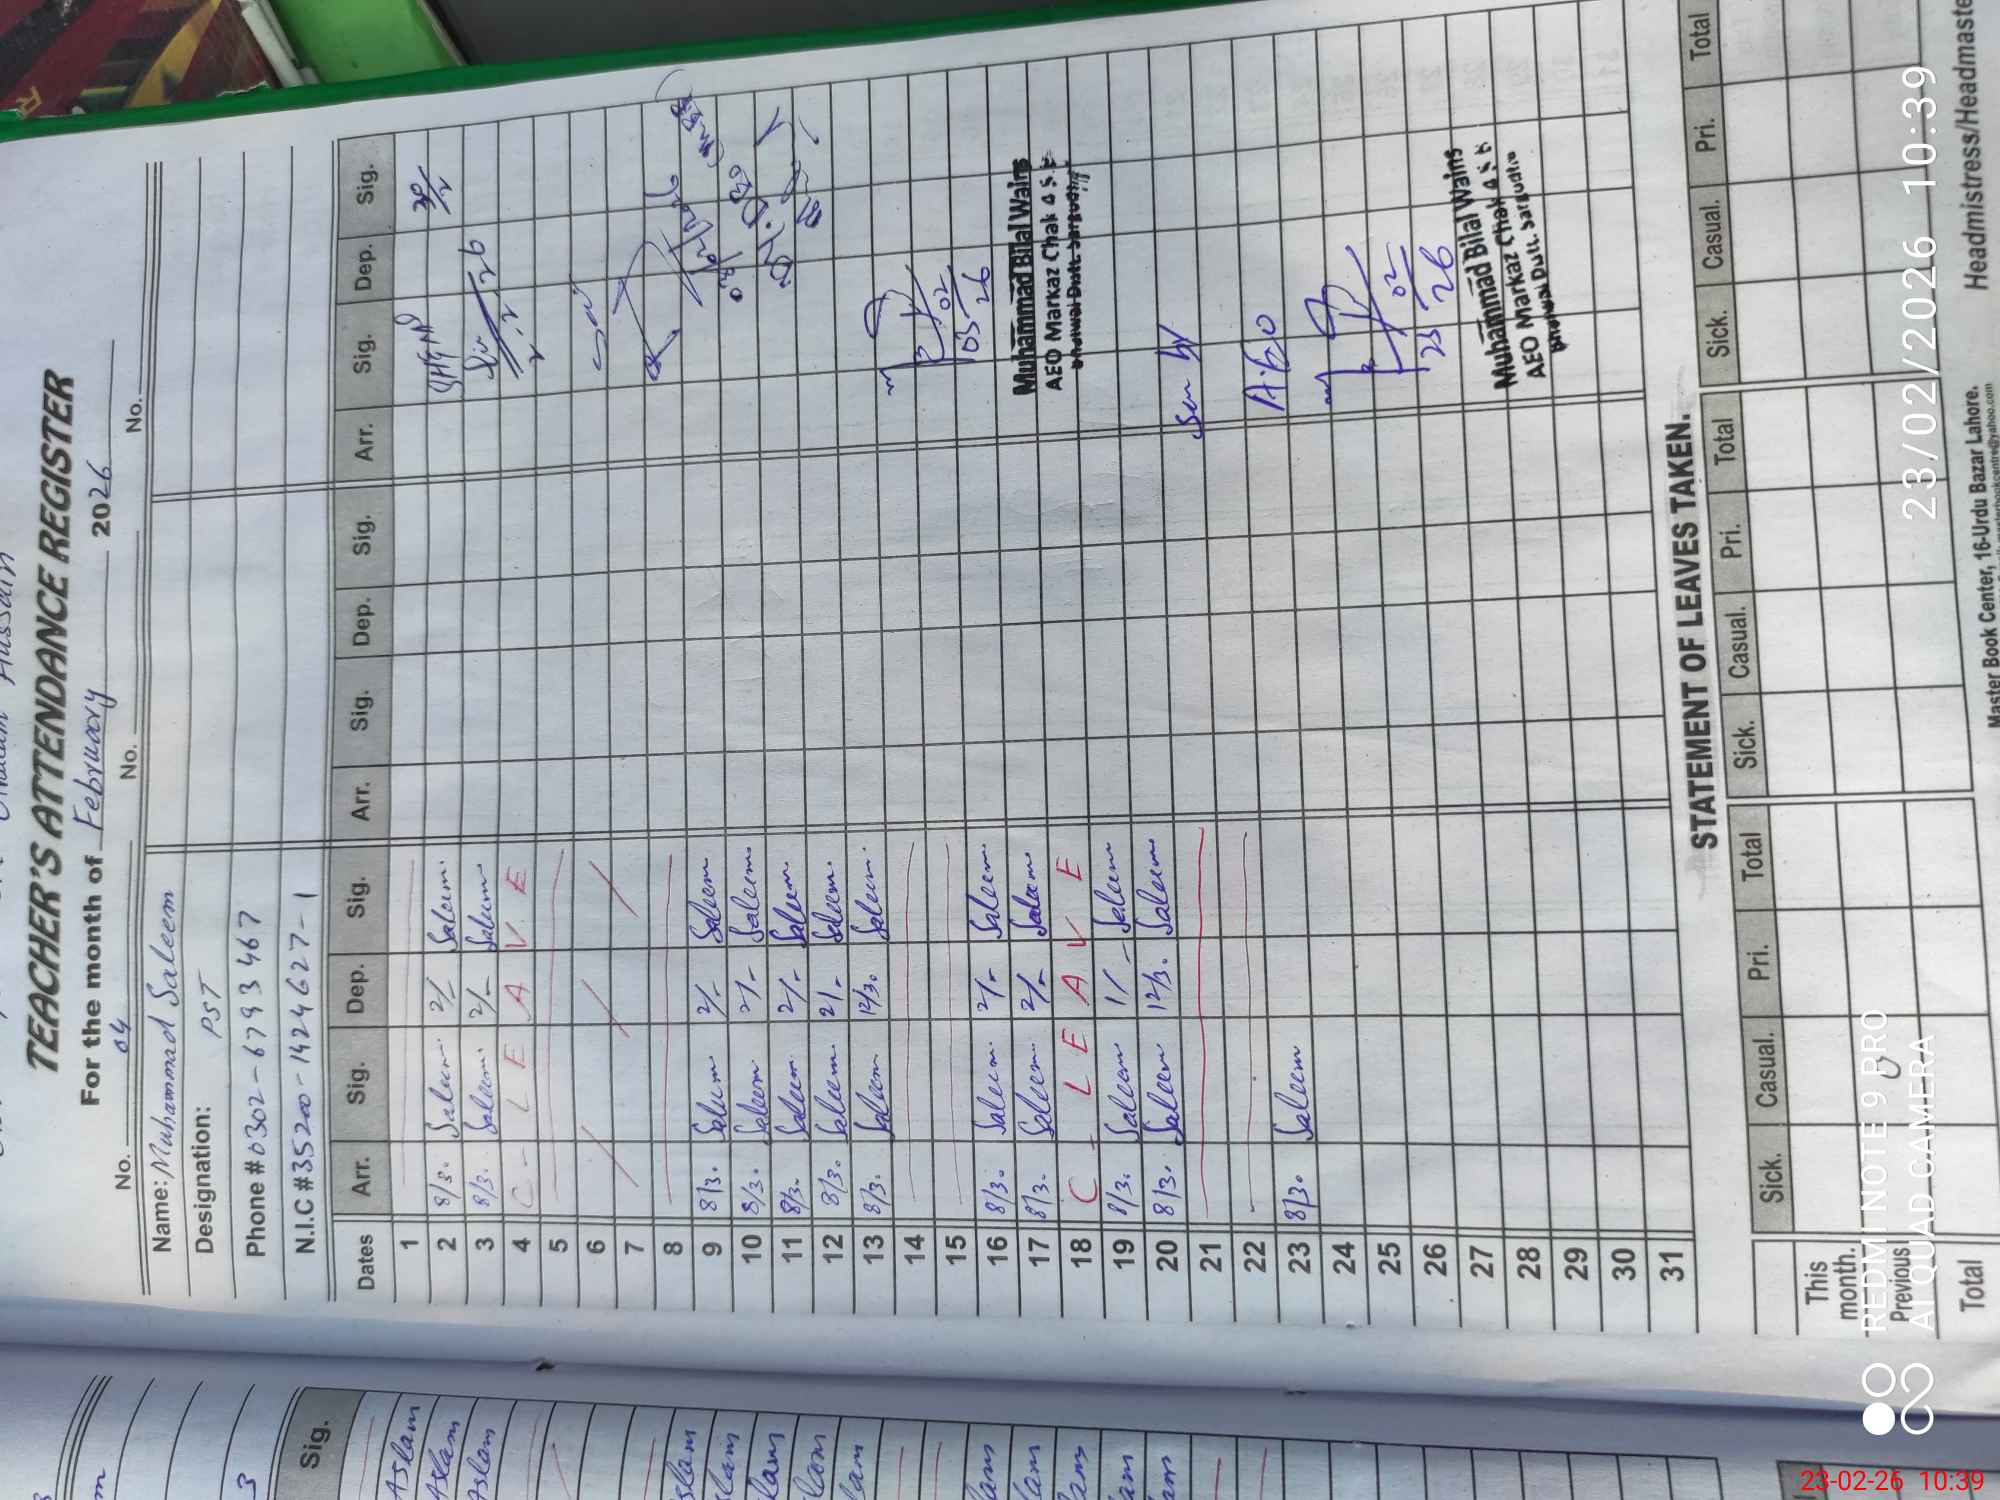 TEACHER'S ATTENDANCE REGISTER
For the month of February 2026
No. 04 No. No.
Name: Muhammad Saleem
Designation: PST
Phone # 0302-6793467
N.I.C # 35200-1424627-1
Dates Arr. Sig. Dep. Sig. Arr. Sig. Dep. Sig. Arr. Sig. Dep. Sig.
1
2 8/3. Saleem. 2/- Saleem.
3 8/3. Saleem. 2/- Saleem
4 C- L E A V E
5
6
7
8
9 8/3. Saleem 2/- Saleem
10 8/3. Saleem 2/- Saleem
11 8/3. Saleem 2/- Saleem
12 8/3. Saleem 2/- Saleem.
13 8/3. Saleem 12/3. Saleem.
14
15
16 8/3. Saleem. 2/- Saleem.
17 8/3. Saleem. 2/- Saleem
18 C - L E A V E
19 8/3. Saleem 1/- Saleem
20 8/3. Saleem 12/3. Saleem
21
22
23 8/3. Saleem
24
25
26
27
28
29
30
31
02
03 26
Muhammad Bilal Wains
AEO Markaz Chak
02
23 26
Muhammad Bilal Wains
AEO Markaz Chak
STATEMENT OF LEAVES TAKEN.
Sick. Casual. Pri. Total Sick. Casual. Pri. Total Sick. Casual. Pri. Total
This month.
Previous
Total
Master Book Center, 16-Urdu Bazar Lahore.
Headmistress/Headmaste
Sig.
Aslam
Aslam
Aslam
REDMI NOTE 9 PRO
AI QUAD CAMERA
23/02/2026 10:39
23-02-26 10:39